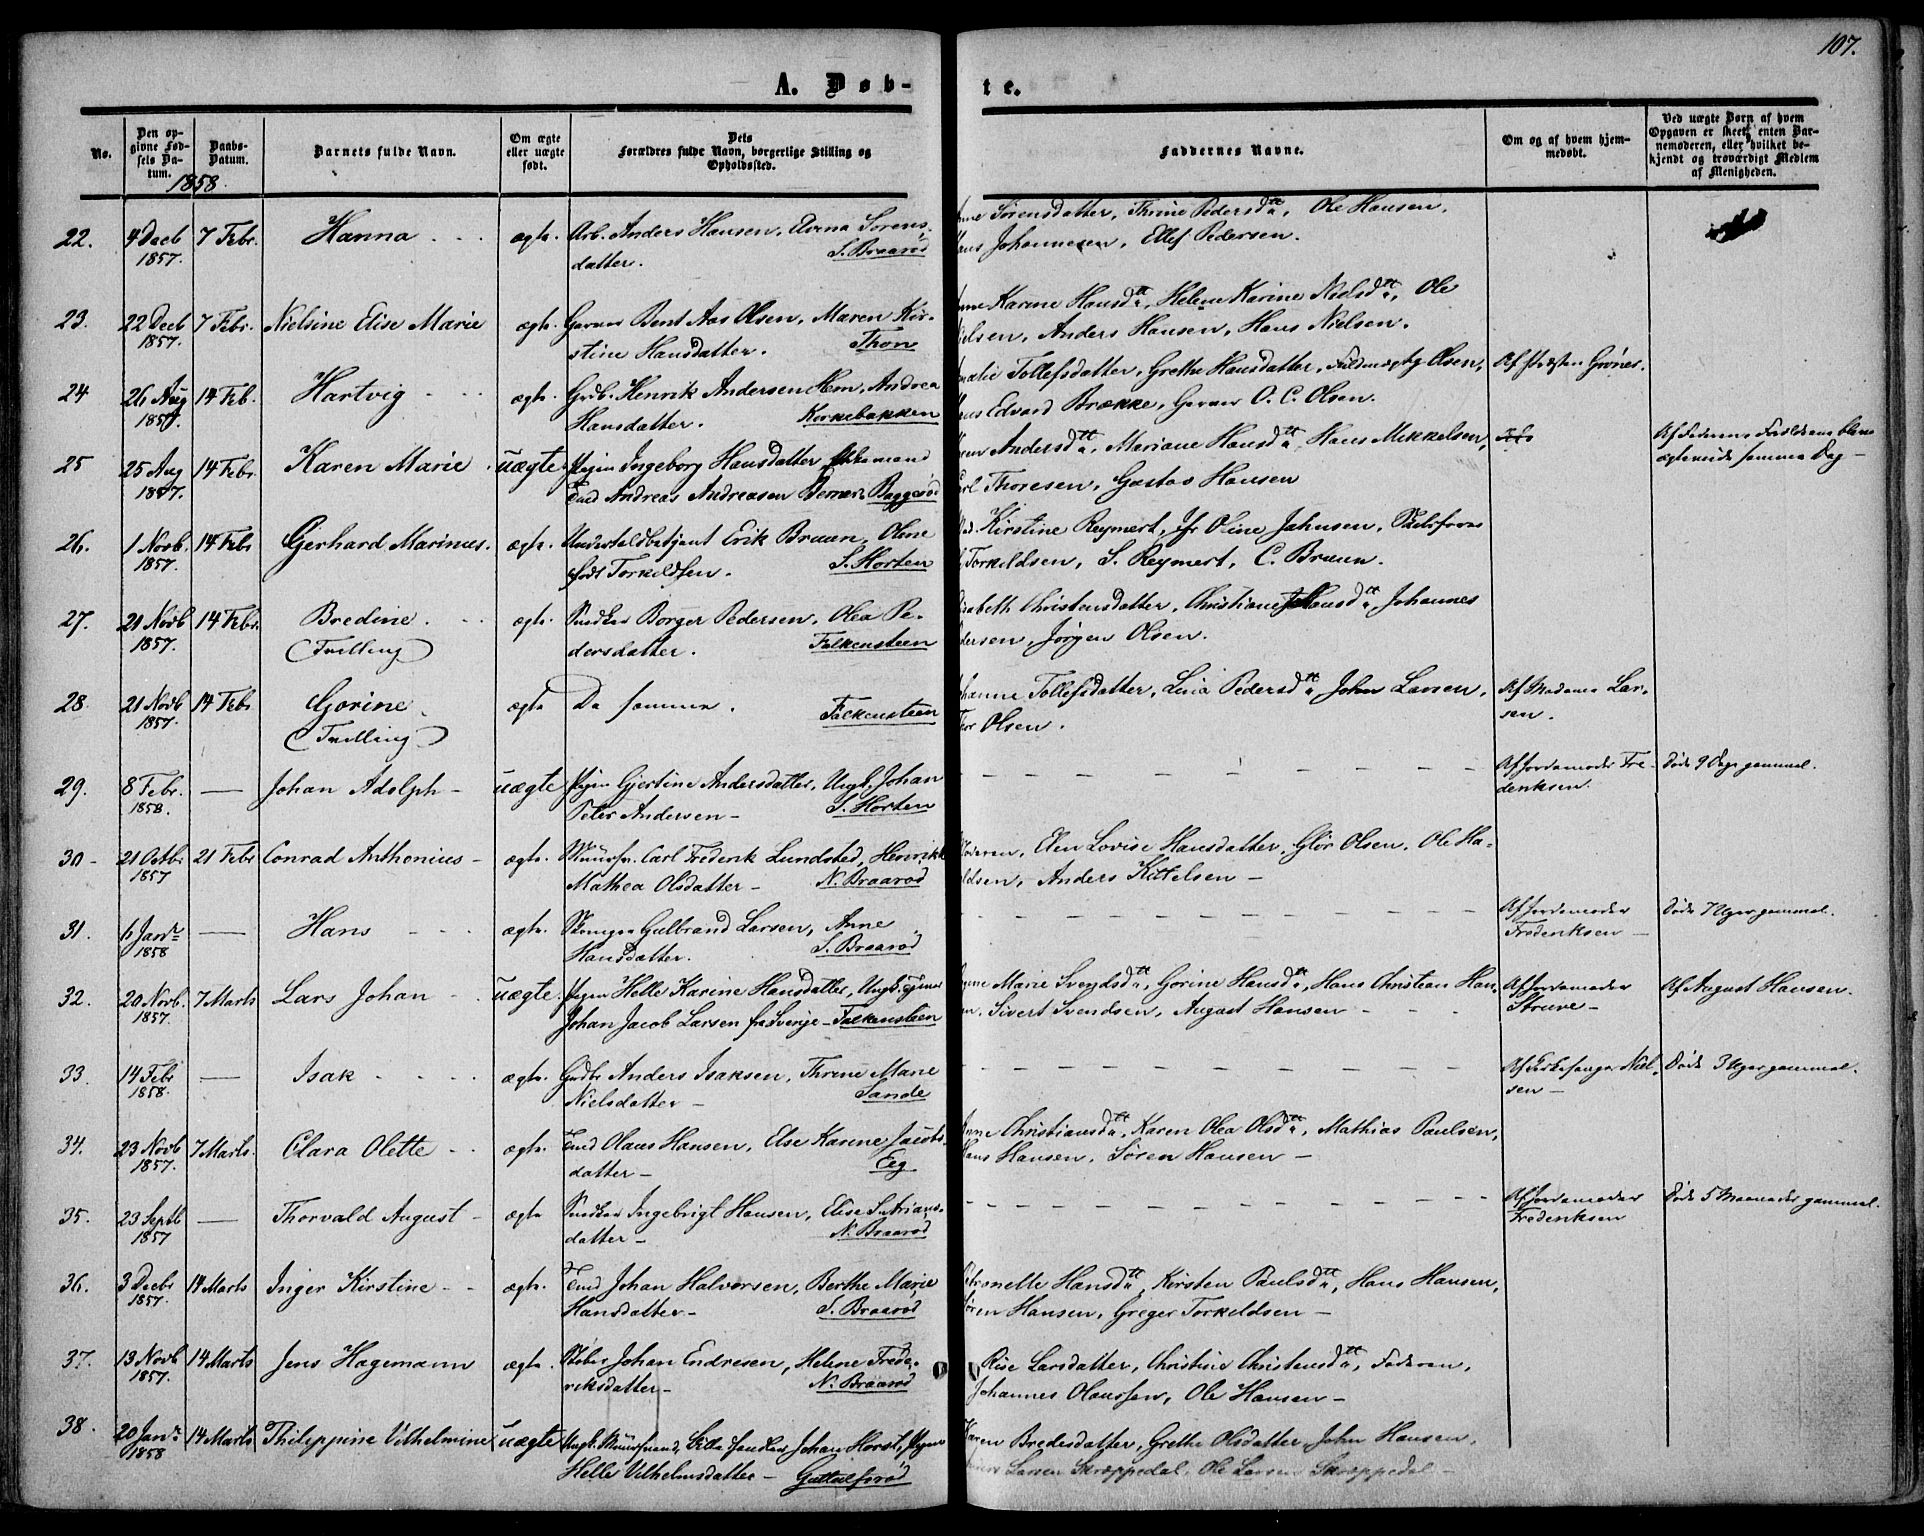 107.
A. Døb-
te.
No.
Den op-
givne Fød-
sels Da-
tum.
Daabs-
Datum.
Barnets fulde Navn.
Om ægte
eller uægte
født.
Dets
Forældres fulde Navn, borgerlige Stilling og
Opholdssted.
Faddernes Navne.
Om og af hvem hjem-
medøbt.
Ved uægte Børn af hvem
Opgaven er skeet, enten Bar-
nemoderen, eller hvilket be-
kjendt og troværdigt Medlem
af Menigheden.
1858.
22. 4 Decb 1857. 7 Febr. Hanna ægte. Arb. Anders Hansen, Elvena Sørens-
datter. S. Braarød
Sørensdatter, Thrine Pedersdtt, Ole Hansen,
Johannesen, Ellef Pedersen.
23. 22 Decb 1857. 7 Febr. Nielsine Elise Marie ægte. Garver Bent Aas Olsen, Maren Kir-
stine Hansdatter. Thon
Karine Hansdtt, Helene Karine Nielsdtt, Ole
Anders Hansen, Hans Nielsen.
24 26 Aug 1857. 14 Feb. Hartvig ægte. Grdb. Henrik Andersen Hem, Andrea
Hansdatter. Kirkebakken
Tollefsdatter, Grethe Hansdatter, Fuldmægtg Olsen,
Edvard Brække, Garver O. C. Olsen.
Af Grøner.
25 25 Aug 1857. 14 Febr. Karen Marie uægte. Pigen Ingeborg Hansdatter
Andreas Andreasen
Andersdtt, Mariane Hansdtt, Hans Mikkelsen,
Thoresen, Gustav Hansen
Af Faderen. Forældrene bleve
ægteviede samme Dag —
26. 1 Novb. 1857. 14 Febr Gerhard Marinus. ægte. Undertoldbetjent Erik Bruun, Olene
født Torkildsen. S. Horten
Kirstine Reymert, Jfr Oline Jahnsen,
Torkildsen, S. Reymert, C. Bruun.
27. 21 Novb 1857. 14 Febr. Bredine. (Tvilling) ægte. Snedker Borger Pedersen, Olea Pe-
dersdatter. Falkensteen
Christensdatter, Christiane Hansdtt, Johannes
Jørgen Olsen.
28. 21 Novb 1857. 14 Febr Gorine (Tvilling) ægte De samme. Falkensteen
Tollefsdatter, Lina Pedersdtt John Larsen,
Olsen.
Af Madame Lar-
sen.
29. 8 Febr. 1858. — Johan Adolph — uægte Pigen Gjertine Andersdatter, Ungk. Johan
Peter Andersen — S. Horten
Af Jordemoder Fre-
deriksen.
Døde 9 Dage gammel.
30 — 21 Octbr 1857 21 Febr Conrad Anthonius — ægte. Muursv. Carl Frederik Lundsted, Henrikke
Mathea Olsdatter — N. Braarød
Elen Lovise Hansdatter, Glør Olsen, Ole Ha-
Anders Kittelsen —
31. 6 Janr 1858 — Hans ægte. Gulbrand Larsen, Anne
Hansdatter. S. Braarød
Af Jordemoder
Frederiksen —
Døde 7 Uger gammel.
32. 20 Novb. 1857. 7 Marts Lars Johan uægte. Pigen Helle Karine Hansdatter, Ungk. Tjener
Johan Jacob Larsen fra Sverige — Falkensteen
Marie Svendsdtt, Gorine Hansdtt, Hans Christian Han-
Sivert Svendsen, August Hansen —
Af Jordemoder
Struve —
Af August Hansen.
33. 14 Febr 1858. — Isak ægte. Grdbr Anders Isaksen, Thrine Marie
Nielsdatter — Sande
Af Kirkesanger Niel-
sen —
Døde 3 Uger gammel.
34. 23 Novb 1857. 7 Marts. Clara Olette ægte. Olaus Hansen, Else Karine Jacobs-
datter — Eeg
Christiansdtt, Karen Olea Olsdtt, Mathias Paulsen,
Hansen, Søren Hansen —
35. 23 Septb 1857 — Thorvald August — ægte Snedker Ingebrigt Hansen, Elise
datter — N. Braarød
Af Jordemoder
Frederiksen
Døde 5 Maaneder gammel.
36. 3 Decbr 1857. 14 Marts Inger Kirstine ægte. Johan Halvorsen, Berthe Marie
Hansdatter — S. Braarød
Hansdtt, Kirsten Paulsdtt, Hans Hansen,
Hansen, Greger Torkildsen —
37. 13 Novb 1857. 14 Marts Jens Hagemann ægte. Johan Endresen, Helene Frede-
riksdatter — N. Braarød
Larsdatter, Christine Christensdtt, Faderen,
Johannes Olaussen, Ole Hansen —
38. 20 Janr 1858 14 Marts Philippine Vilhelmine uægte Ungk. Johan Horst, Pigen
Helle Vilhelmsdatter —
Bredesdatter, Grethe Olsdatter, John Hansen,
Larsen Skrøppedal, Ole Larsen Skrøppedal —